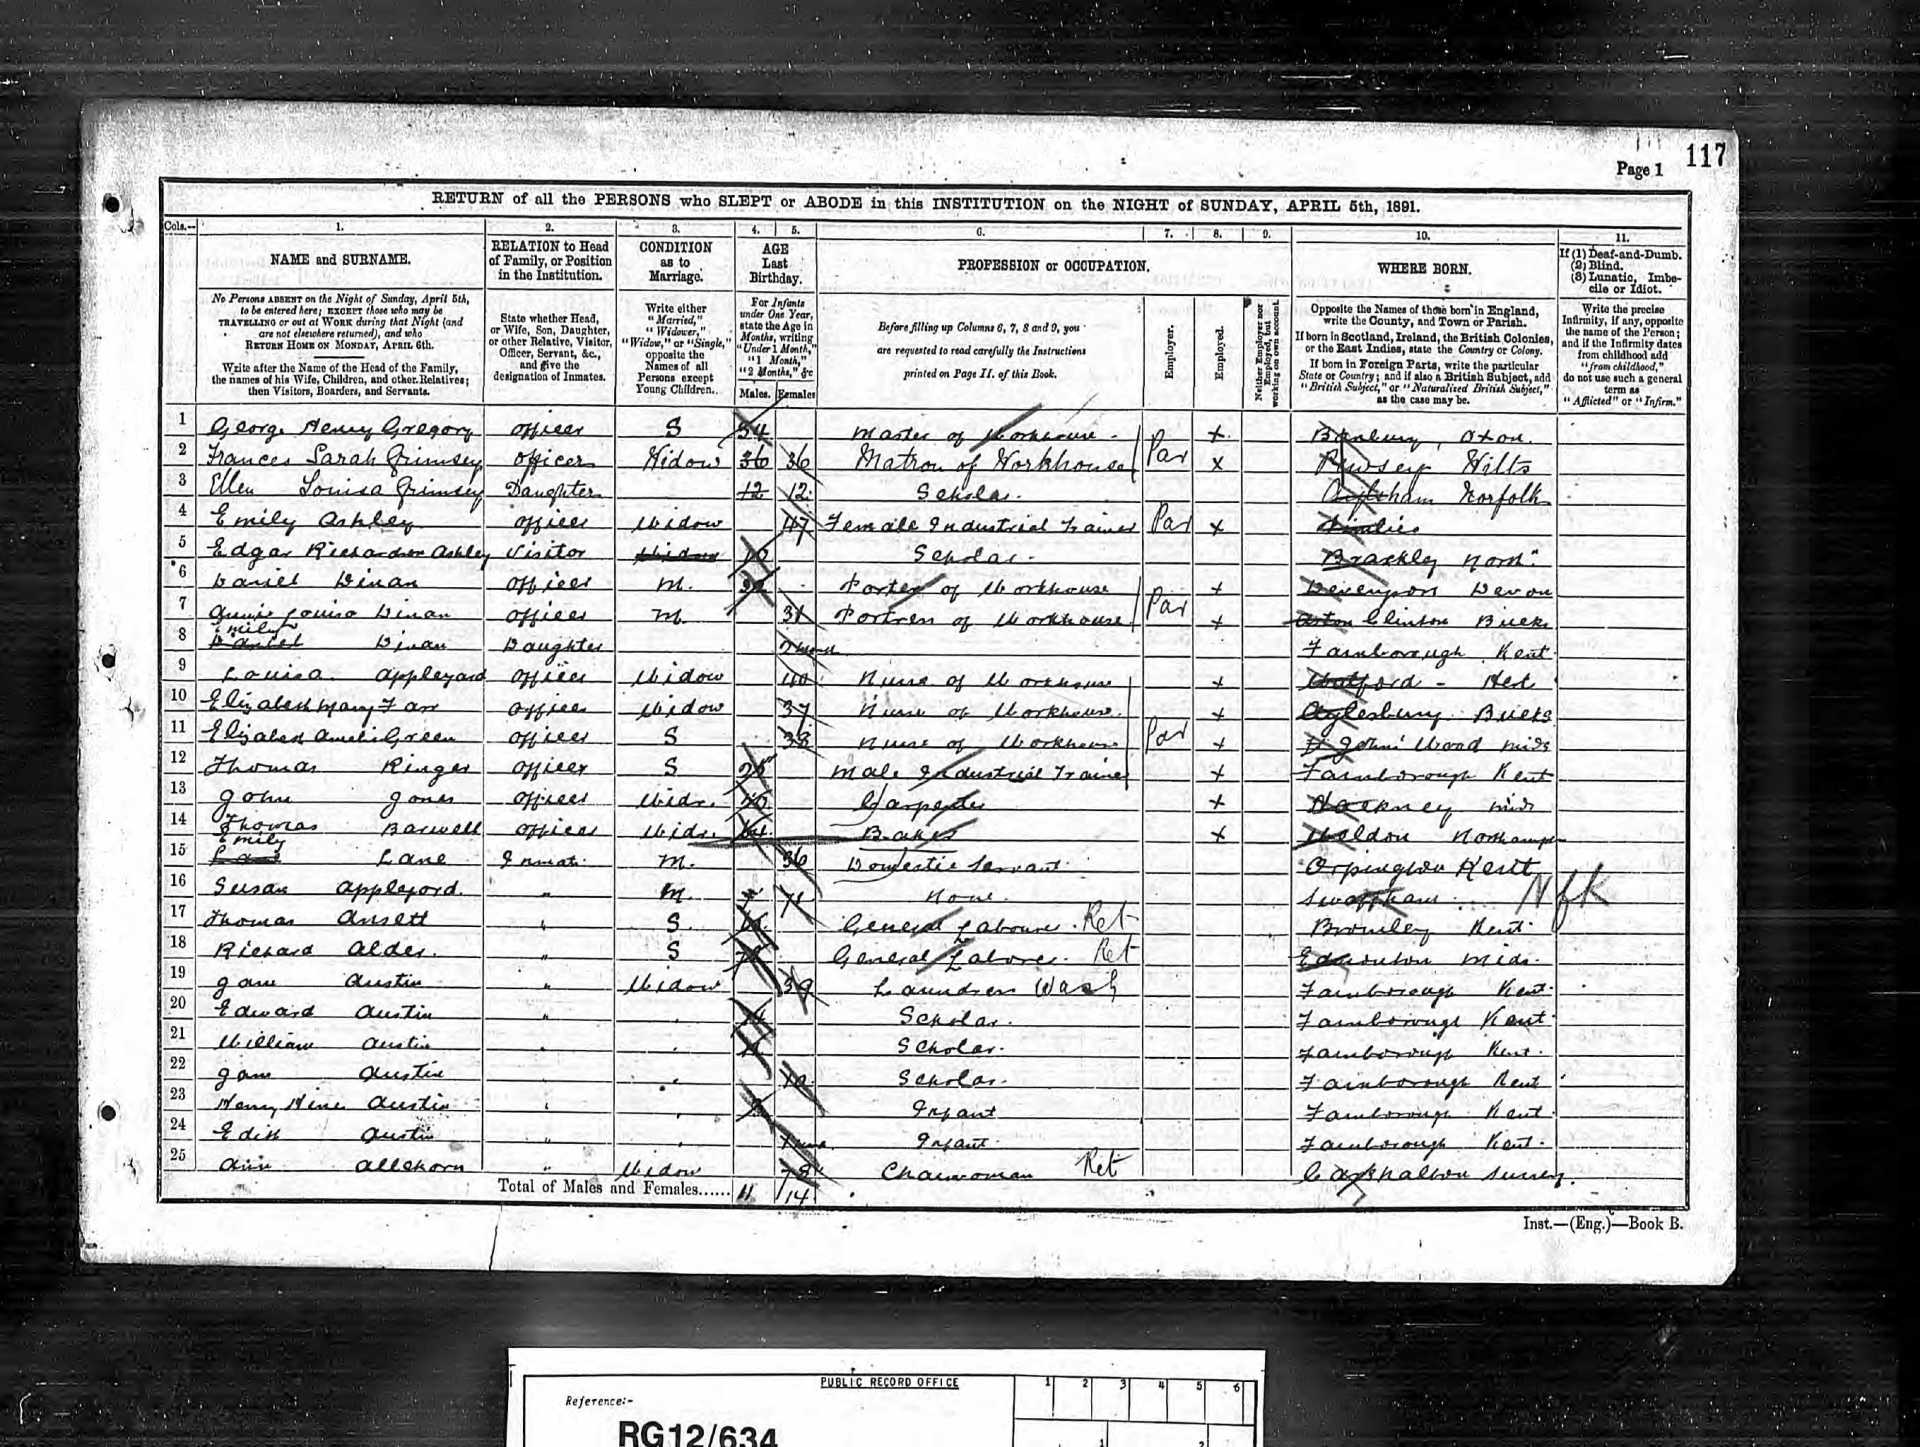 117
Page 1
RETURN of all the PERSONS who SLEPT or ABODE in this INSTITUTION on the NIGHT of SUNDAY, APRIL 5th, 1891.
Cols.— 1. 2. 3. 4. 5. 6. 7. 8. 9. 10. 11.
NAME and SURNAME.
No Persons ABSENT on the Night of Sunday, April 5th,
to be entered here; EXCEPT those who may be
TRAVELLING or out at WORK during that Night (and
are not elsewhere returned), and who
RETURN HOME ON MONDAY, APRIL 6th.
Write after the Name of the Head of the Family,
the names of his Wife, Children, and other Relatives;
then Visitors, Boarders, and Servants.
RELATION to Head
of Family, or Position
in the Institution.
State whether Head,
or Wife, Son, Daughter,
or other Relative, Visitor,
Officer, Servant, &c.,
and give the
designation of Inmates.
CONDITION
as to
Marriage.
Write either
"Married,"
"Widower,"
"Widow," or "Single,"
opposite the
Names of all
Persons except
Young Children.
AGE
Last
Birthday.
For Infants
under One Year,
state the Age in
Months, writing
"Under 1 Month,"
"1 Month,"
"2 Months," &c
Males. Females
PROFESSION or OCCUPATION.
Before filling up Columns 6, 7, 8 and 9, you
are requested to read carefully the Instructions
printed on Page II. of this Book.
Employer.
Employed.
Neither Employer nor
Employed, but
working on own account.
WHERE BORN.
Opposite the Names of those born in England,
write the County, and Town or Parish.
If born in Scotland, Ireland, the British Colonies,
or the East Indies, state the Country or Colony.
If born in Foreign Parts, write the particular
State or Country; and if also a British Subject, add
"British Subject," or "Naturalized British Subject,"
as the case may be.
If (1) Deaf-and-Dumb.
(2) Blind.
(3) Lunatic, Imbe-
cile or Idiot.
Write the precise
Infirmity, if any, opposite
the name of the Person;
and if the Infirmity dates
from childhood add
"from childhood,"
do not use such a general
term as
"Afflicted" or "Infirm."
1 George Henry Gregory officer S 34 Master of Workhouse x Banbury, Oxon.
2 Frances Sarah Grimsey officer Widow 36 36 Matron of Workhouse Par x Pewsey Wilts
3 Ellen Louisa Grimsey Daughter 12 12 Scholar. Aylsham Norfolk
4 Emily Ashley officer Widow 47 Female Industrial Trainer Par x
5 Edgar Richardson Ashley Visitor Widow 10 Scholar. Brackley North:
6 Daniel Dinan officer M. 32 Porter of Workhouse x Devenport Devon
7 Annie Louisa Dinan officer M. 31 Portress of Workhouse Par x Aston Clinton Bucks
8 Daniel Emily Dinan Daughter 2 mond Farnborough Kent
9 Louisa Appleyard officer Widow 40 Nurse of Workhouse x Watford - Hert
10 Elizabeth Mary Farr officer Widow 37 Nurse of Workhouse x Aylesbury Bucks
11 Elizabeth Amelia Green officer S 38 Nurse of Workhouse Par x St Johns Wood Midx
12 Thomas Ringer officer S 25 Male Industrial Trainer x Farnborough Kent
13 John Jones officer Widr. Carpenter x Hackney Midx
14 Thomas Barwell officer Widr. 64 Baker x Weldon Northampn
15 Emily Lane Inmate M. 36 Domestic Servant Orpington Kent
16 Susan Appleford. " M. 71 None. Swaffham Nfk
17 Thomas Ansett " S. General Labourer. Ret Bromley Kent
18 Richard Alder. " S General Laborer. Ret Edmonton Midx.
19 Jane Austin " Widow 39 Laundress Wash Farnborough Kent
20 Edward Austin " 14 Scholar. Farnborough Kent
21 William Austin " Scholar. Farnborough Kent.
22 Jane Austin " 10 Scholar. Farnborough Kent
23 Henry Austin " Infant Farnborough Kent
24 Edith Austin " Infant Farnborough Kent.
25 Ann Allchorn " Widow 72 Charwoman Ret Carshalton Surrey.
Total of Males and Females...... 11 14
Inst.—(Eng.)—Book B.
PUBLIC RECORD OFFICE
1 2 3 4 5 6
Reference:-
RG12/634
1 2